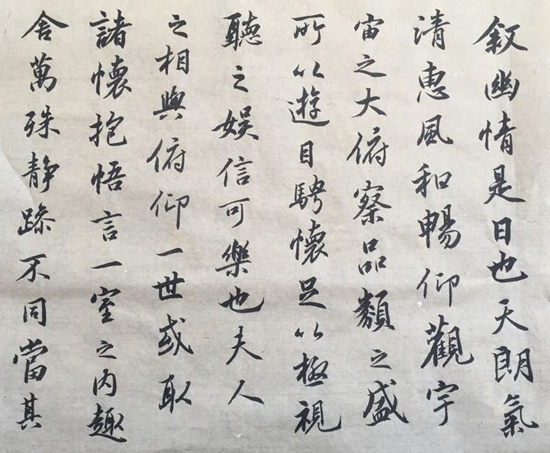 叙幽情是日也天朗氣
清惠風和暢仰觀宇
宙之大俯察品類之盛
所以遊目騁懷足以極視
聽之娛信可樂也夫人
之相與俯仰一世或取
諸懷抱悟言一室之内趣
舍萬殊静躁不同當其